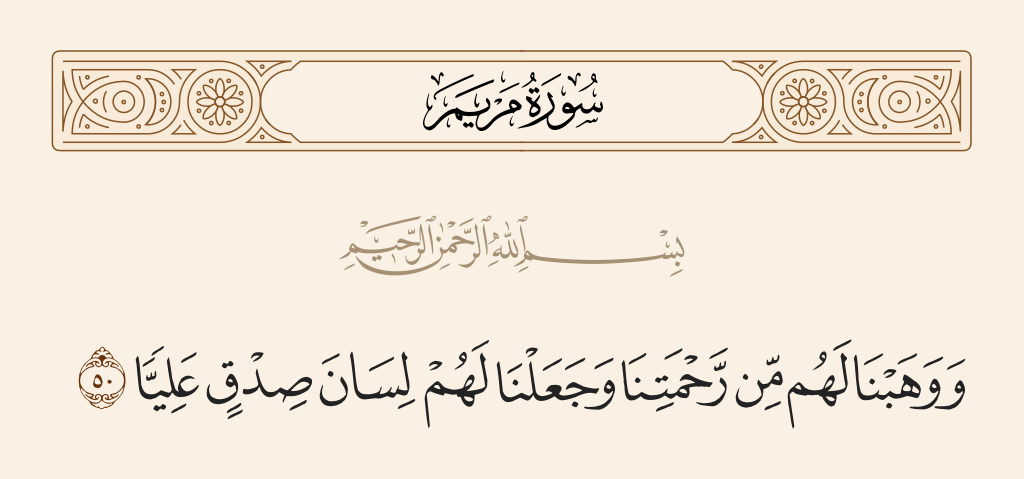 سُورَةُ مَرْيَمَ
بِسْمِ ٱللَّهِ ٱلرَّحْمَٰنِ ٱلرَّحِيمِ
وَوَهَبْنَا لَهُم مِّن رَّحْمَتِنَا وَجَعَلْنَا لَهُمْ لِسَانَ صِدْقٍ عَلِيًّا ٥٠